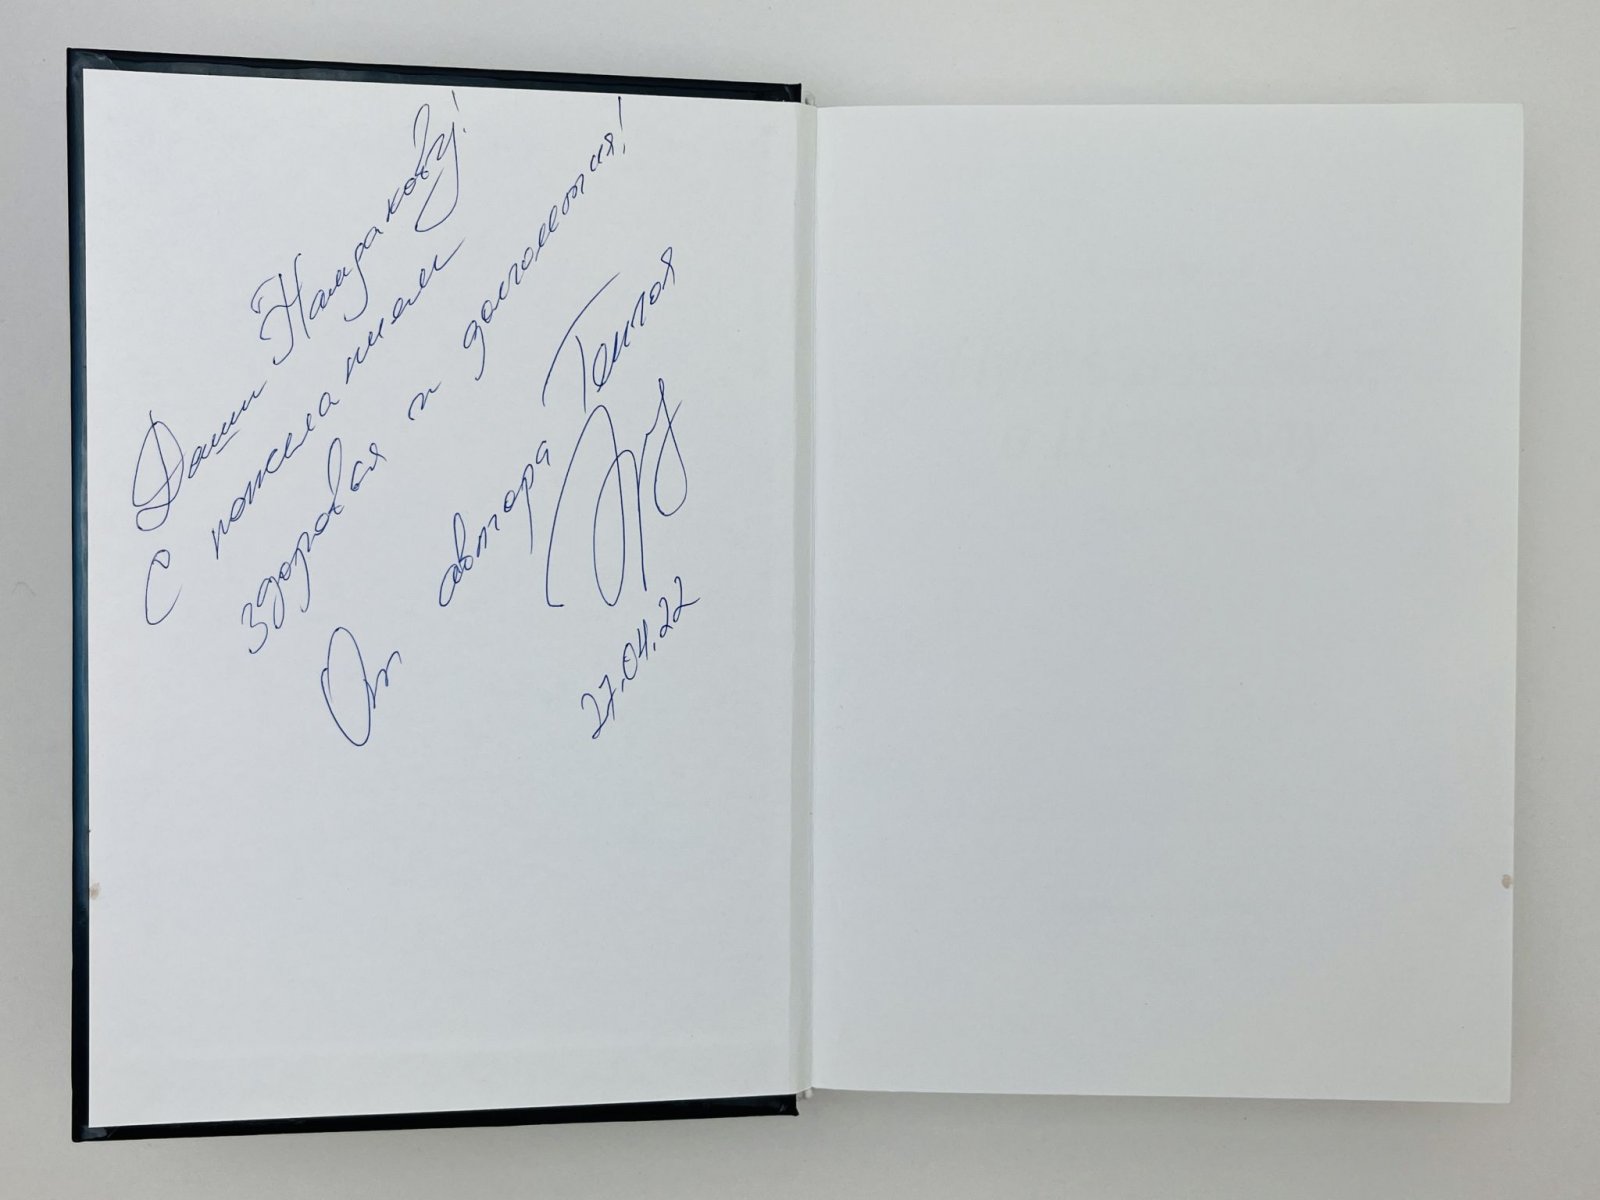 Даши Намдакову!
С пожеланием
здоровья и долголетия!
От автора
27.04.22